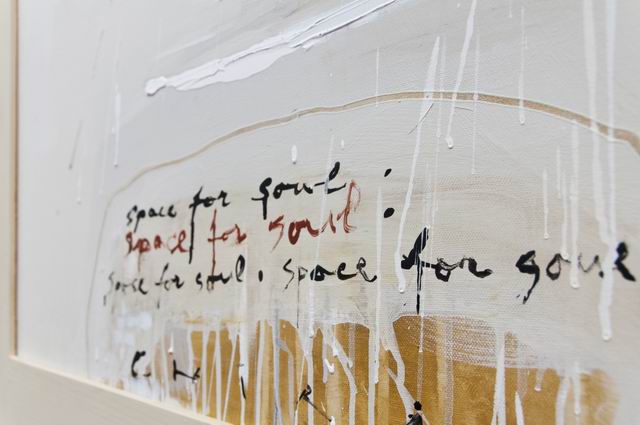 space for soul :
space for soul
space for soul . space for soul
C H I R